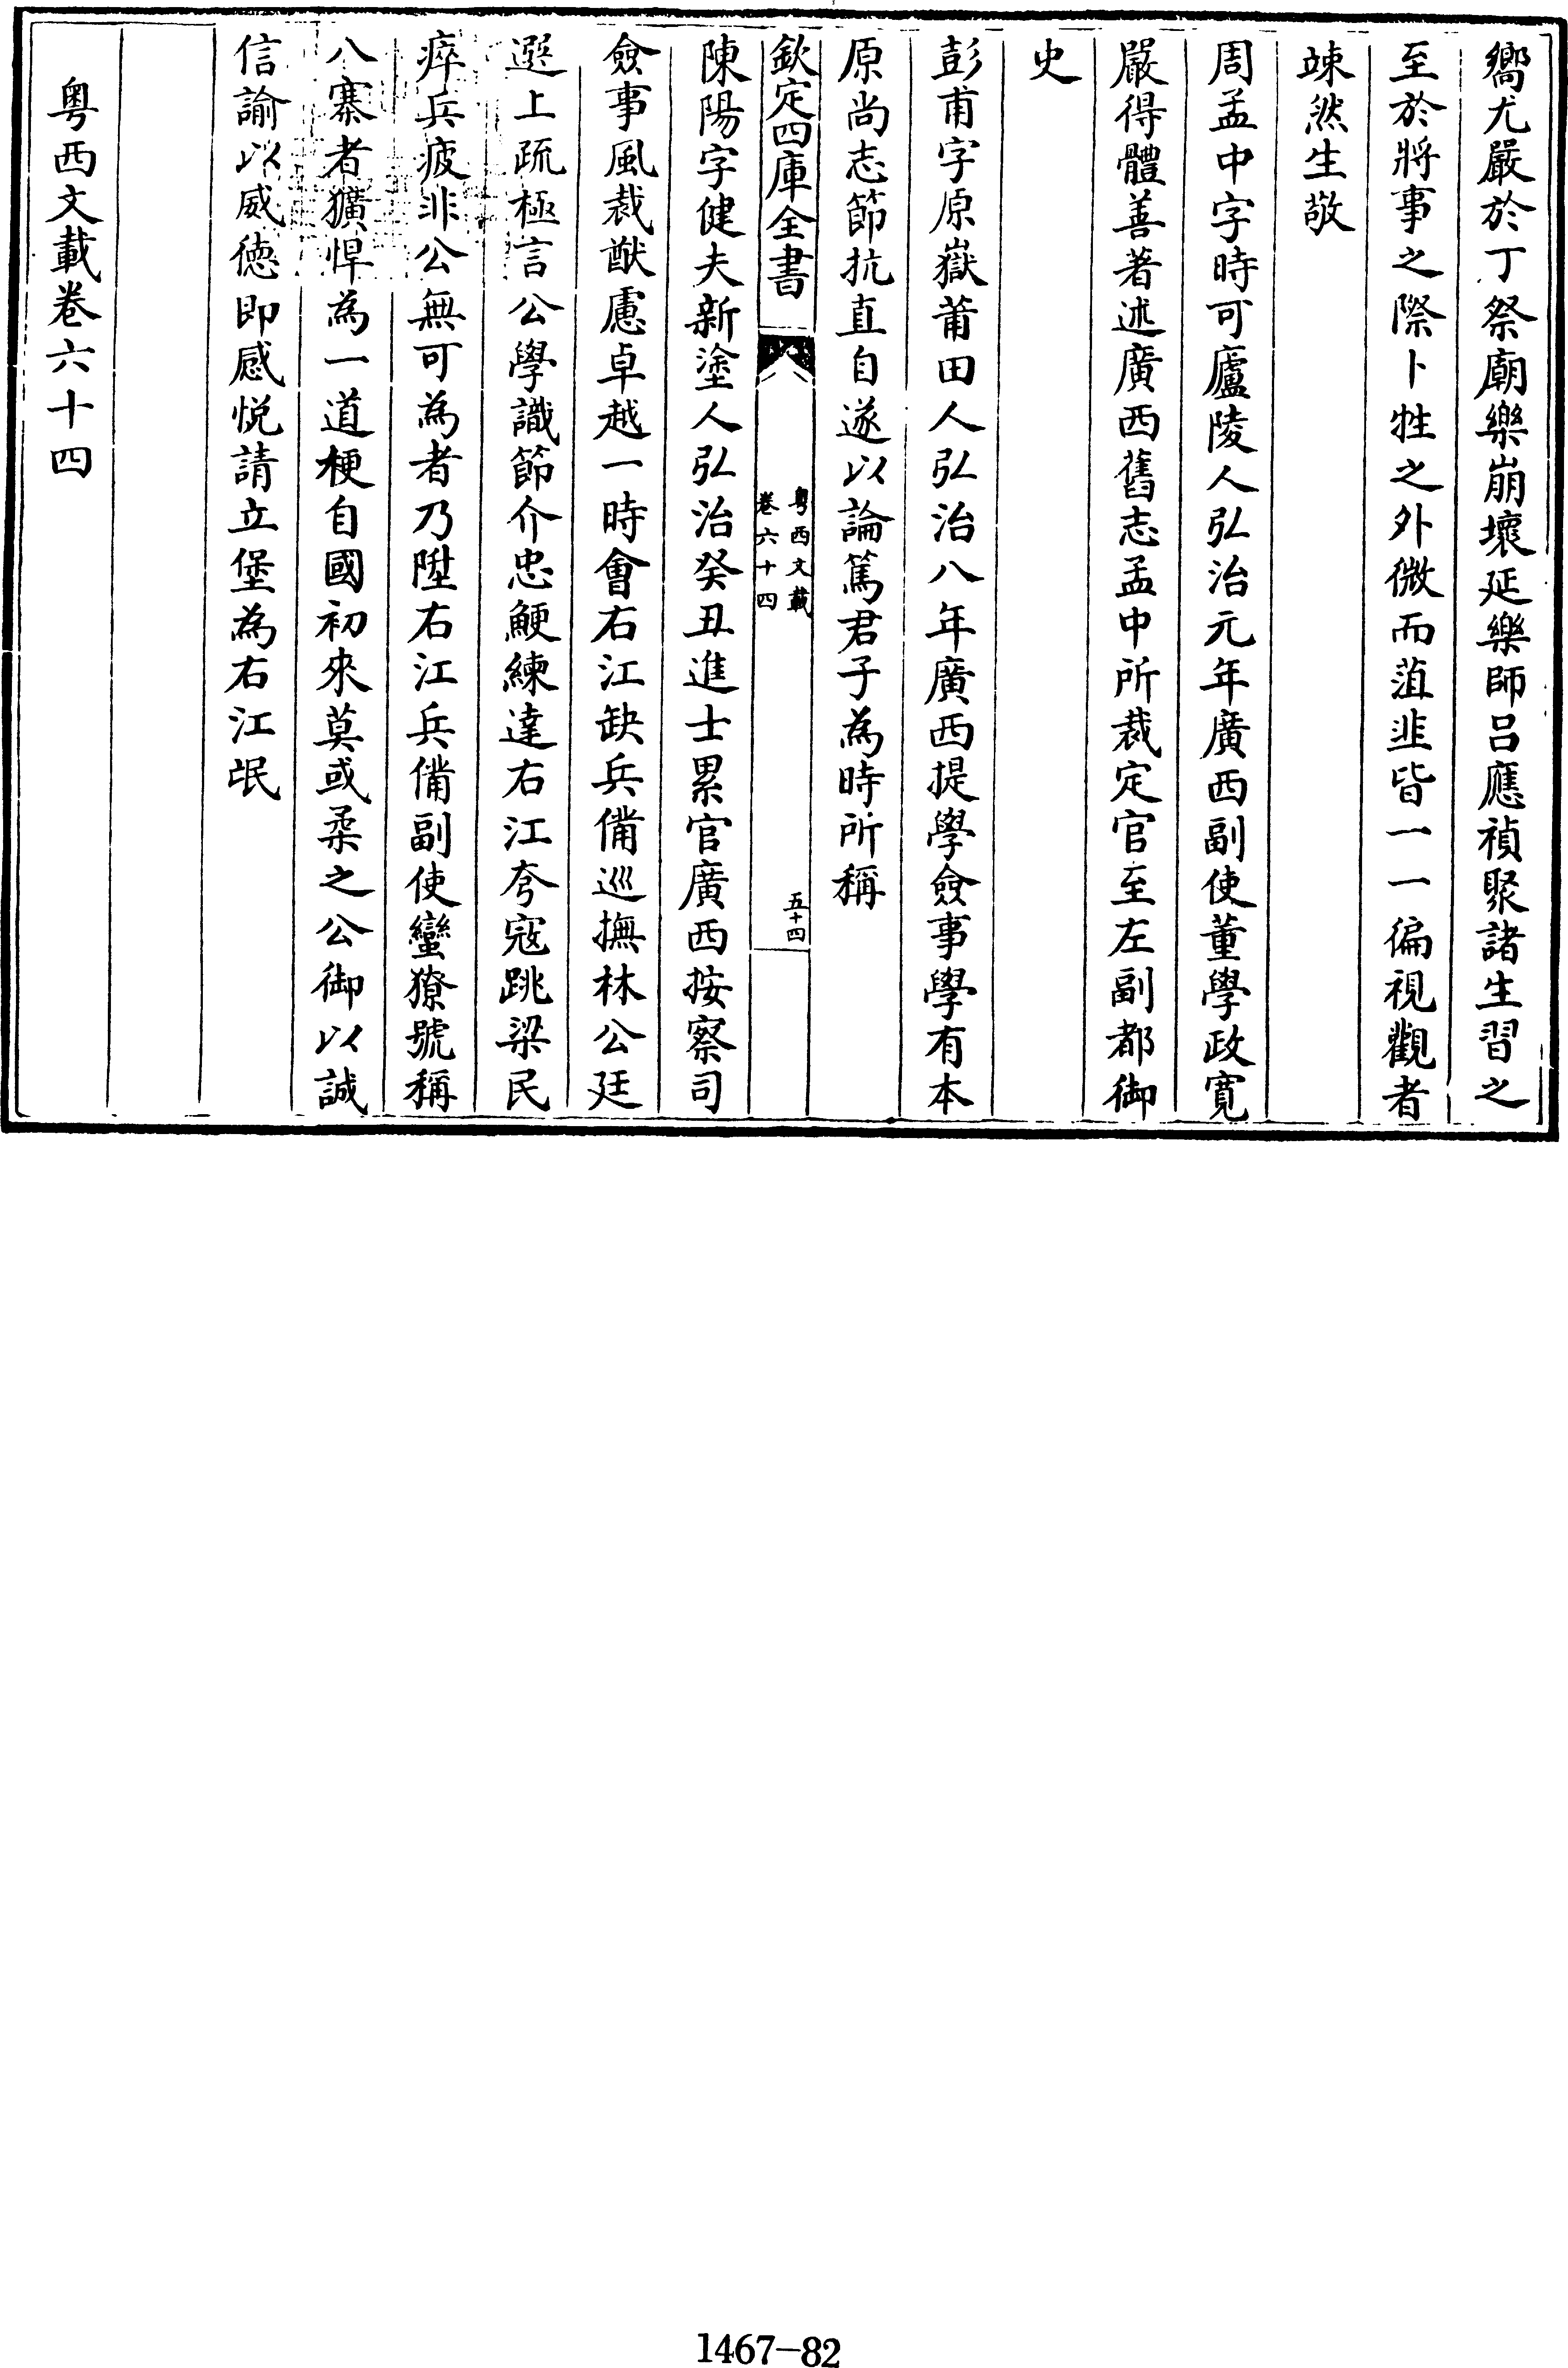 嚮尤嚴於丁祭廟樂崩壞延樂師吕應禎聚諸生習之
至於將事之際卜牲之外微而菹韭皆一一徧視觀者
竦然生敬
周孟中字時可廬陵人弘治元年廣西副使董學政寛
嚴得體善著述廣西舊志孟中所裁定官至左副都御
史
彭甫字原嶽莆田人弘治八年廣西提學僉事學有本
原尚志節抗直自遂以論篤君子為時所稱
欽定四庫全書
粤西文載
卷六十四
五十四
陳陽字健夫新塗人弘治癸丑進士累官廣西按察司
僉事風裁猷慮卓越一時會右江缺兵備巡撫林公廷
選上疏極言公學識節介忠鯁練達右江夸寇跳梁民
瘁兵疲非公無可為者乃陞右江兵備副使蠻獠號稱
八寨者獷悍為一道梗自國初來莫或柔之公御以誠
信諭以威徳即感悦請立堡為右江氓
粤西文載卷六十四
1467-82